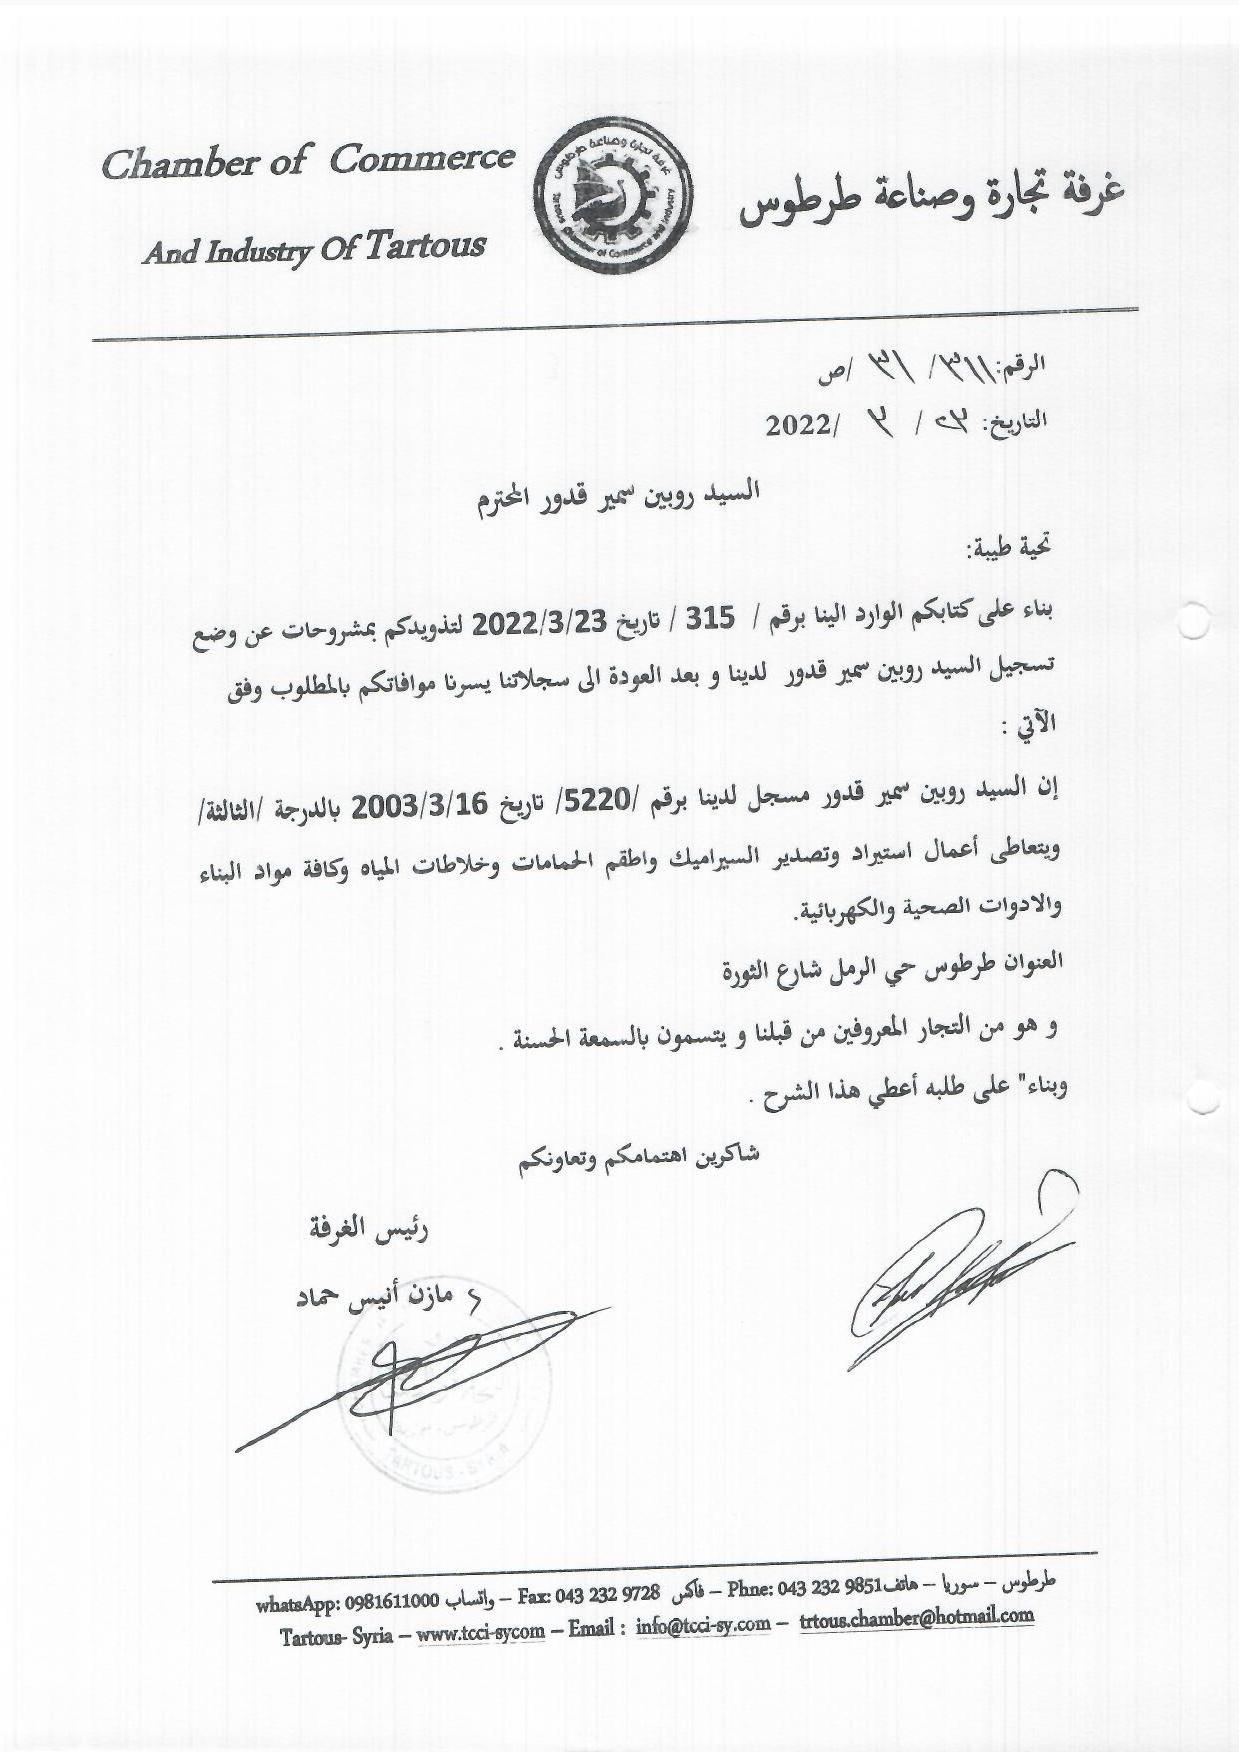 Chamber of Commerce
And Industry Of Tartous
غرفة تجارة وصناعة طرطوس
الرقم: ٣١١/ ٣١ /ص
التاريخ: ٢٣ / ٣ /2022
السيد روبين سمير قدور المحترم
تحية طيبة:
بناء على كتابكم الوارد الينا برقم / 315 / تاريخ 2022/3/23 لتذويدكم بمشروحات عن وضع
تسجيل السيد روبين سمير قدور لدينا و بعد العودة الى سجلاتنا يسرنا موافاتكم بالمطلوب وفق
الآتي :
إن السيد روبين سمير قدور مسجل لدينا برقم /5220/ تاريخ 2003/3/16 بالدرجة /الثالثة/
ويتعاطى أعمال استيراد وتصدير السيراميك واطقم الحمامات وخلاطات المياه وكافة مواد البناء
والادوات الصحية والكهربائية.
العنوان طرطوس حي الرمل شارع الثورة
و هو من التجار المعروفين من قبلنا و يتسمون بالسمعة الحسنة .
وبناء" على طلبه أعطي هذا الشرح .
شاكرين اهتمامكم وتعاونكم
رئيس الغرفة
مازن أنيس حماد
TARTOUS - SYRIA
طرطوس – سوريا – هاتف Phne: 043 232 9851 – فاكس Fax: 043 232 9728 – واتساب whatsApp: 0981611000
Tartous- Syria – www.tcci-sycom – Email : info@tcci-sy.com – trtous.chamber@hotmail.com